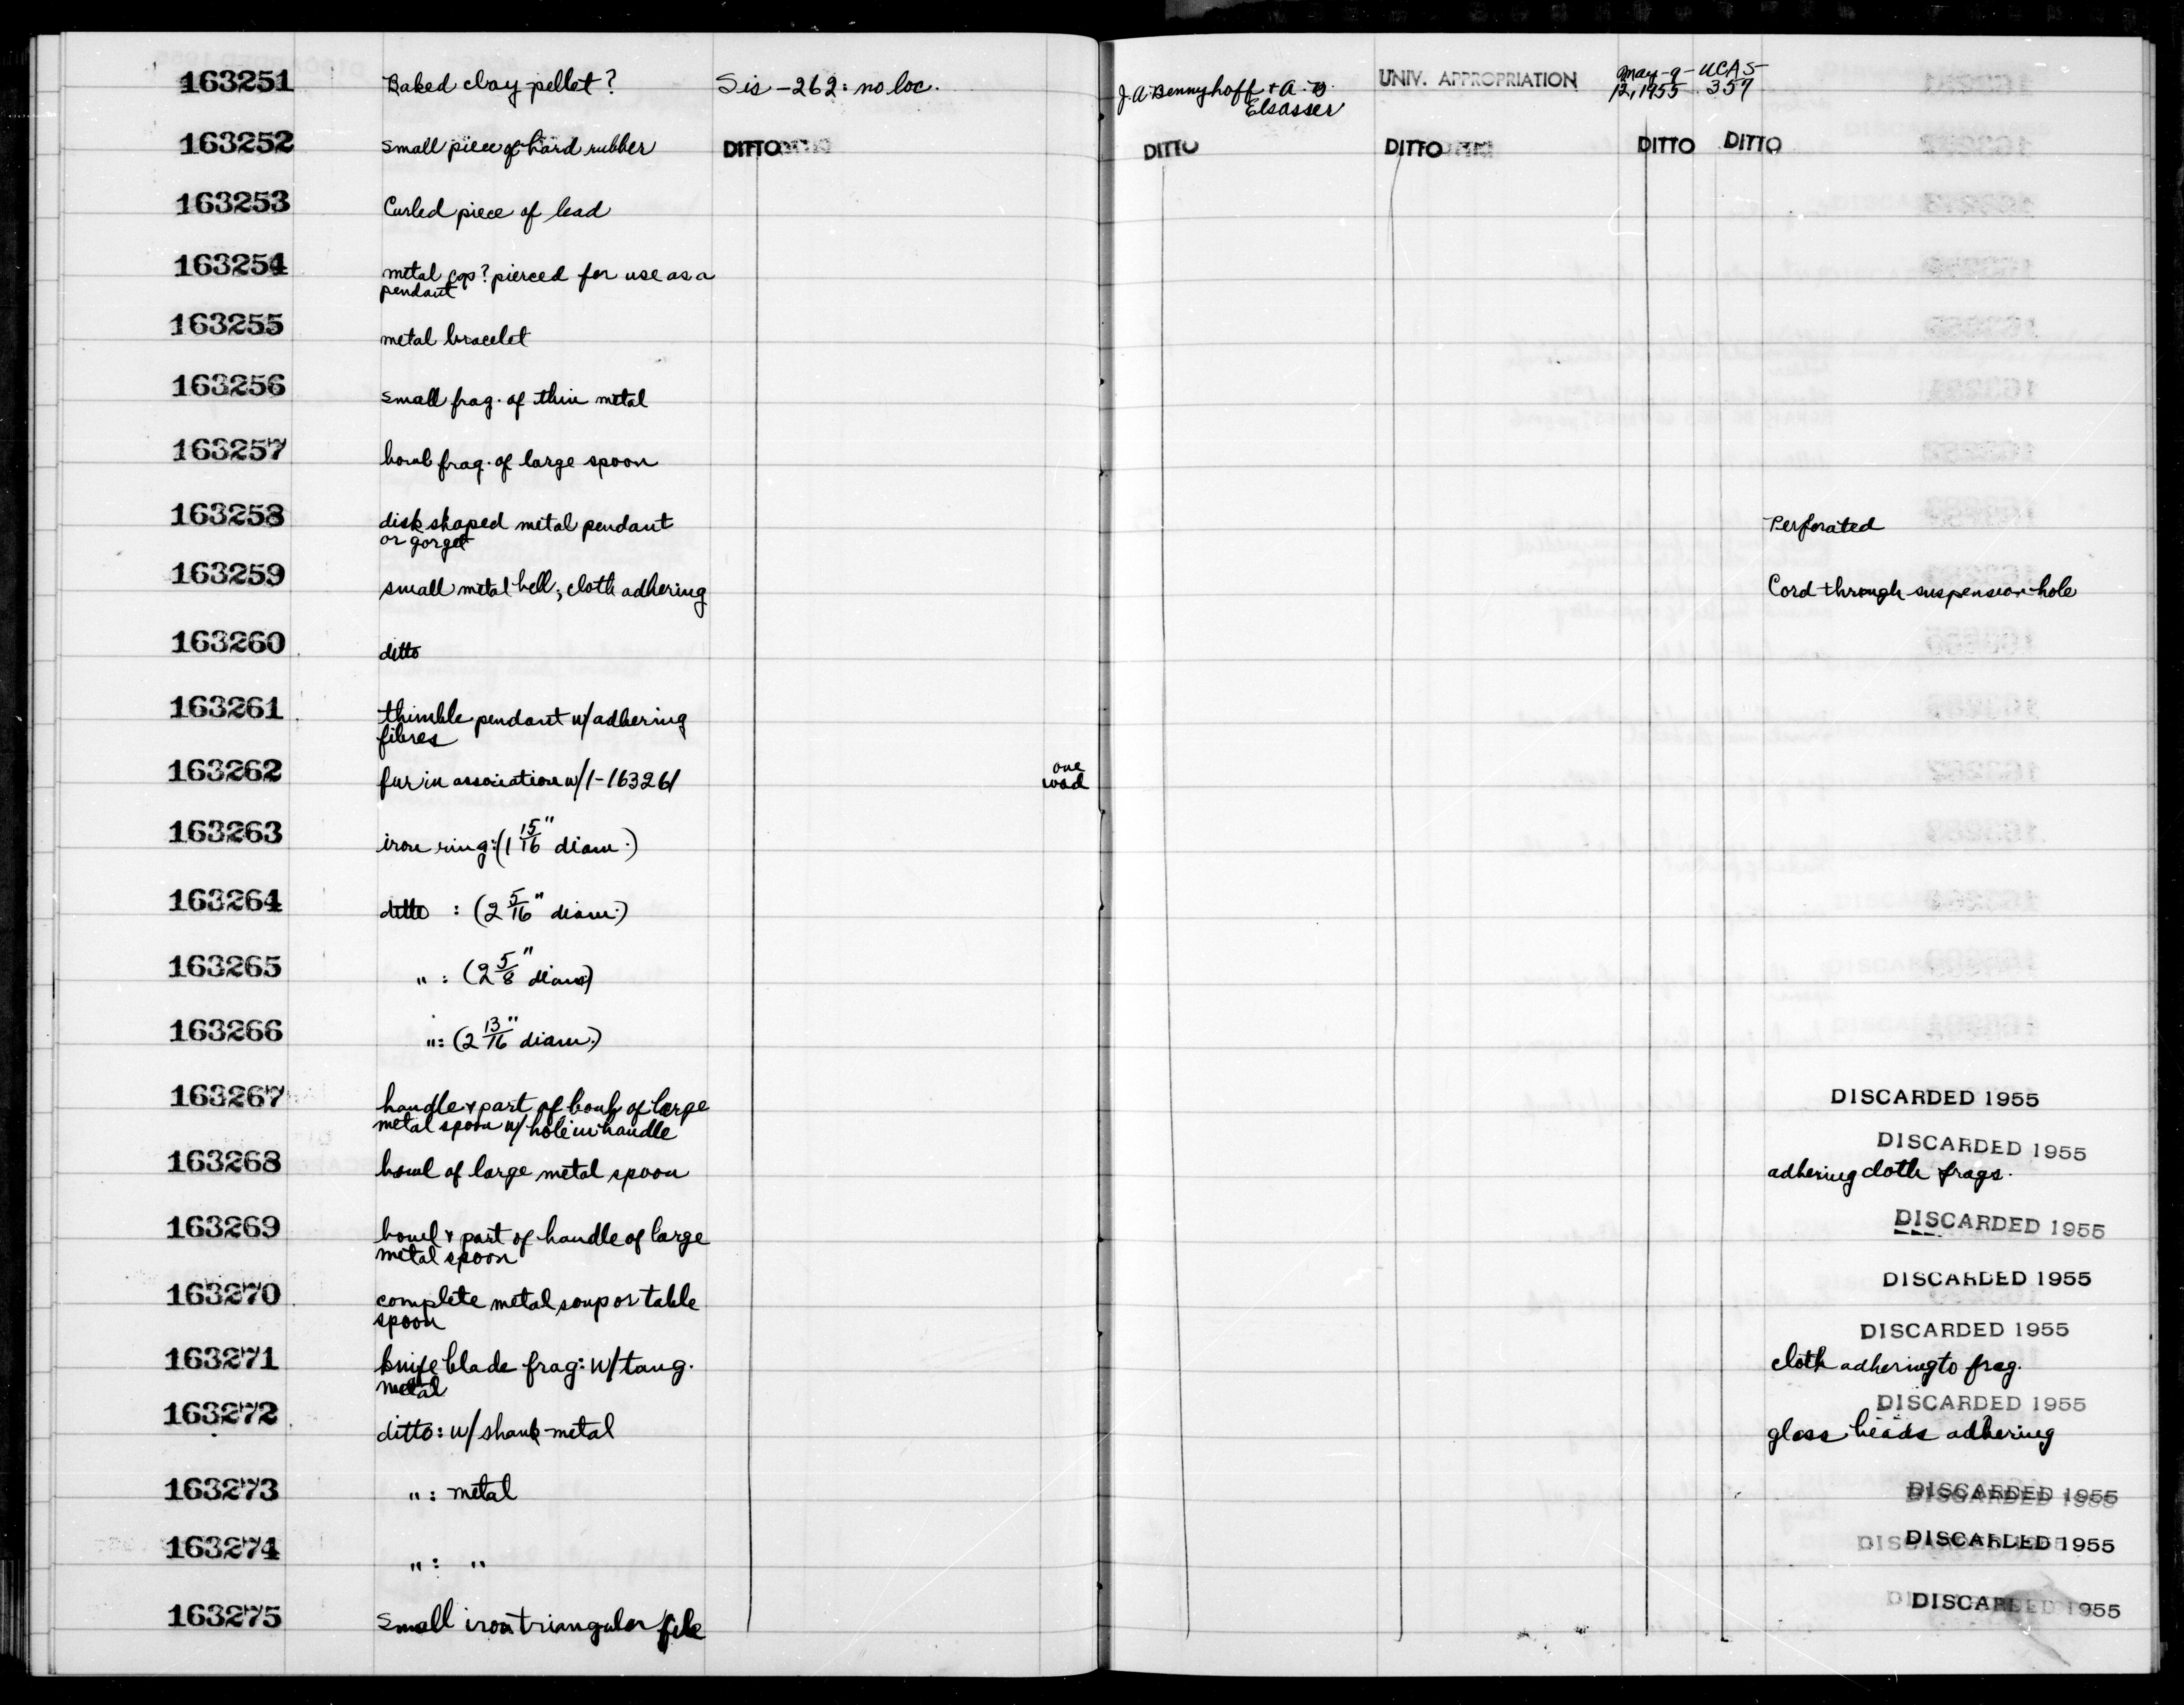 163251 Baked clay pellet? Sis-262: no loc. J.A. Bennyhoff + A. B. UNIV. APPROPRIATION May-9- UCAS-
Elsasser 12, 1955 359
163252 small piece of hard rubber DITTO DITTO DITTO DITTO DITTO
163253 Curled piece of lead
163254 metal cap? pierced for use as a
pendant
163255 metal bracelet
163256 small frag. of thin metal
163257 bowl frag. of large spoon
163258 disk shaped metal pendant Perforated
or gorget
163259 small metal bell; cloth adhering Cord through suspension hole
163260 ditto
163261 thimble pendant w/adhering
fibres
163262 fur in association w/1-163261 one
wad
163263 iron ring: (1 15/16" diam.)
163264 ditto : (2 5/16" diam.)
163265 " : (2 5/8" diam)
163266 " : (2 13/16" diam.)
163267 handle & part of bowl of large DISCARDED 1955
metal spoon w/ hole in handle
DISCARDED 1955
163268 bowl of large metal spoon adhering cloth frags.
163269 bowl & part of handle of large DISCARDED 1955
metal spoon
163270 complete metal soup or table DISCARDED 1955
spoon
DISCARDED 1955
163271 knife blade frag: w/tang. cloth adhering to frag.
metal
DISCARDED 1955
163272 ditto: w/shank-metal glass beads adhering
163273 " : metal DISCARDED 1955
163274 " : " DISCARDED 1955
163275 small iron triangular file DISCARDED 1955